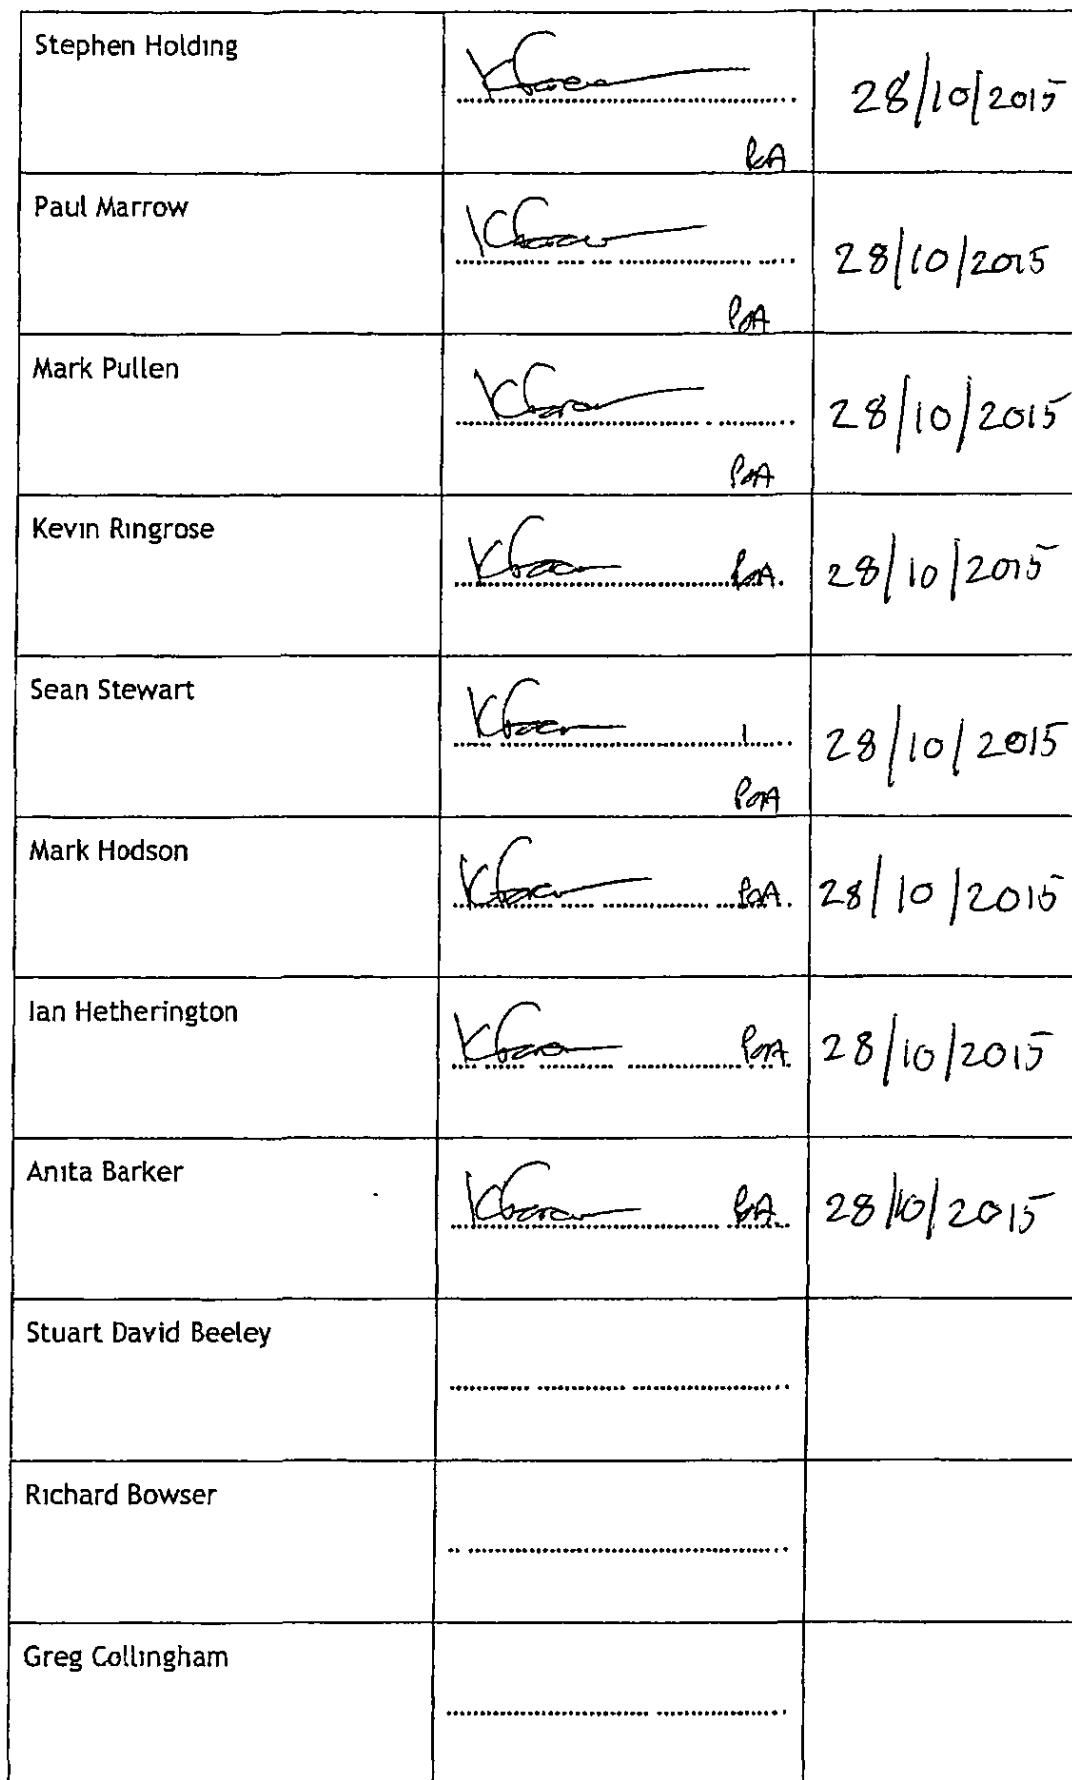 Stephen Holding
28/10/2015
PoA
Paul Marrow
28/10/2015
PoA
Mark Pullen
28/10/2015
PoA
Kevin Ringrose
PoA. 28/10/2015
Sean Stewart
28/10/2015
PoA
Mark Hodson
PoA. 28/10/2015
Ian Hetherington
PoA. 28/10/2015
Anita Barker
PoA. 28/10/2015
Stuart David Beeley
Richard Bowser
Greg Collingham